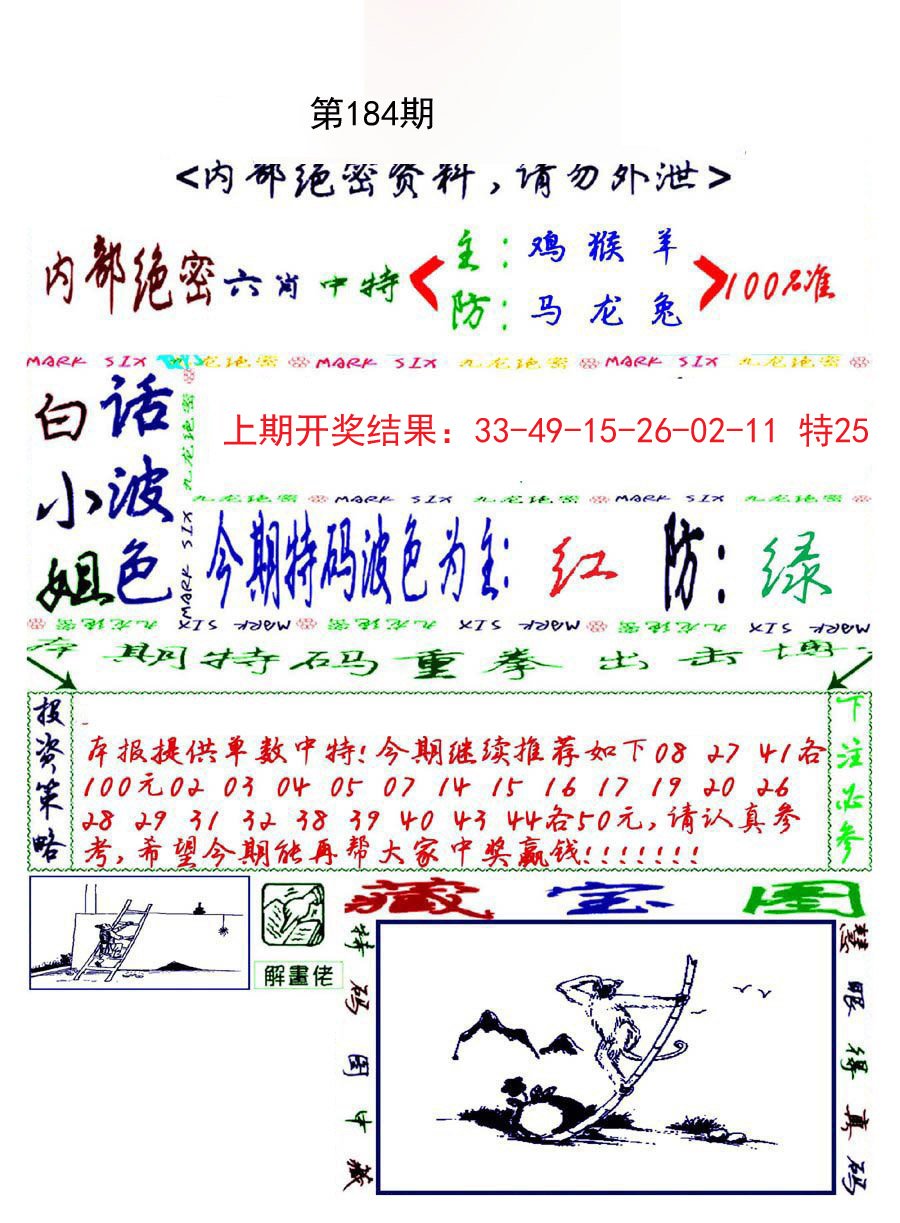 第184期
<内部绝密资料,请勿外泄>
内部绝密六肖中特
主:鸡猴羊
防:马龙兔
100%准
MARK SIX 九龙绝密 MARK SIX 九龙绝密 MARK SIX 九龙绝密
白话
小波
姐色
九龙绝密
MARK SIX
上期开奖结果：33-49-15-26-02-11 特25
九龙绝密 MARK SIX 九龙绝密 MARK SIX 九龙绝密
今期特码波色为主:红 防:绿
九龙绝密 MARK SIX 九龙绝密 MARK SIX 九龙绝密 MARK SIX
本期特码重拳出击博
投资策略
本报提供单数中特!今期继续推荐如下08 27 41各
100元02 03 04 05 07 14 15 16 17 19 20 26
28 29 31 32 38 39 40 43 44各50元,请认真参
考,希望今期能再帮大家中奖赢钱!!!!!!!
下注必参
解畫佬
藏宝图
特码图中藏
慧眼得真码